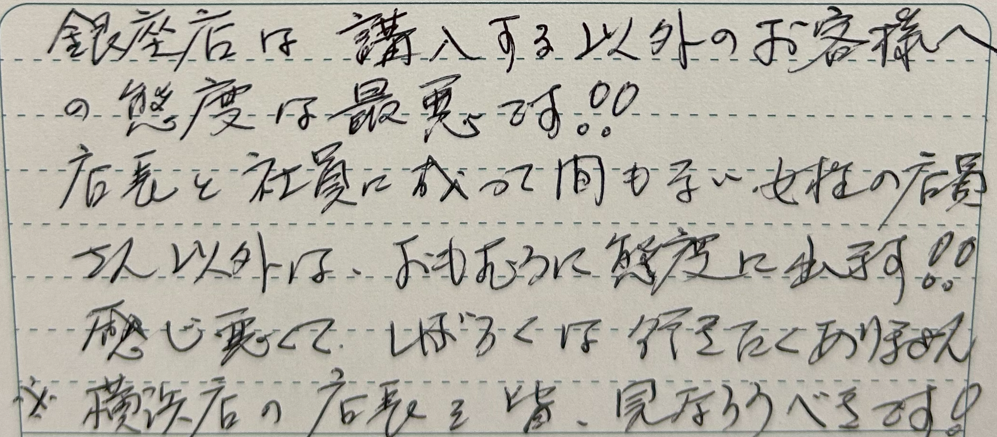 銀座店は講入する以外のお客様へ
の態度は最悪です!!
店長と社員に成って間もない女性の店員
さん以外は、おもむろに態度に出ます!!
感じ悪くて、しばらくは行きたくありません
※横浜店の店長を皆、見なろうべきです!